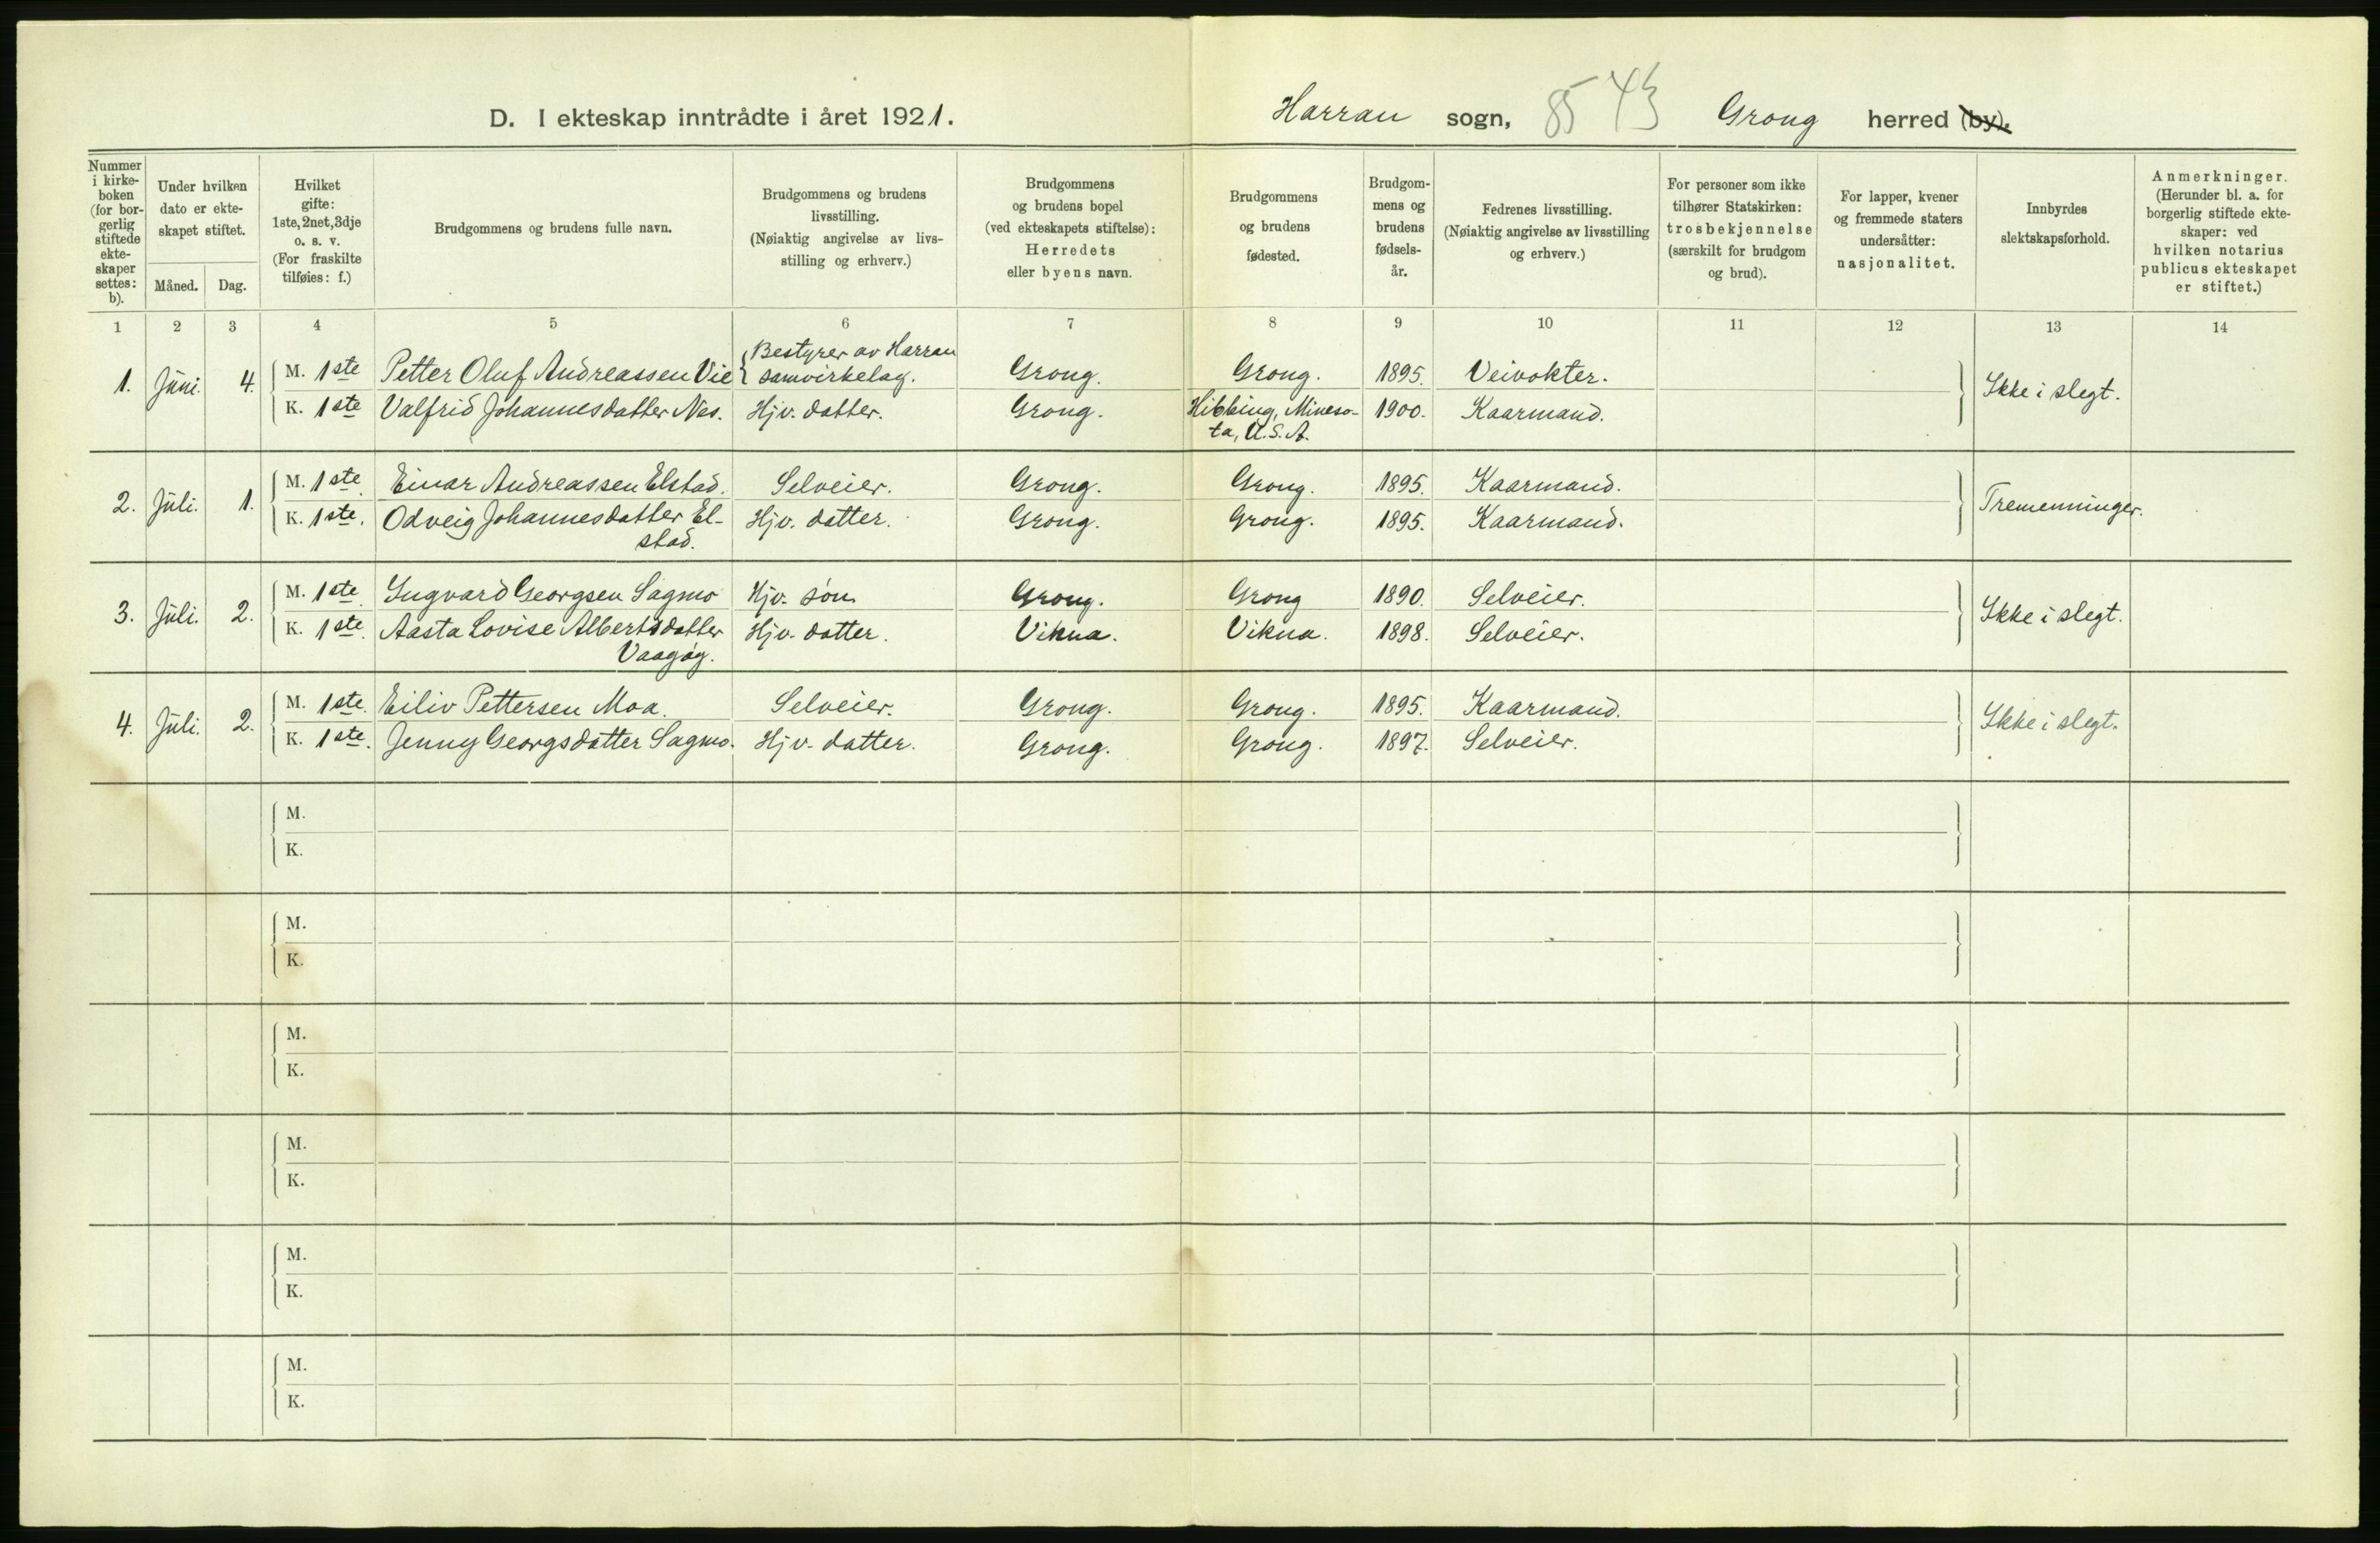 D. I ekteskap inntrådte i året 1921.
Harran sogn, 85 43 Grong herred (by).
Nummer i kirke-boken (for bor-gerlig stiftede ekte-skaper settes: b).
Under hvilken dato er ekte-skapet stiftet.
Måned. Dag.
Hvilket gifte: 1ste, 2net, 3dje o. s. v. (For fraskilte tilføies: f.)
Brudgommens og brudens fulle navn.
Brudgommens og brudens livsstilling. (Nøiaktig angivelse av livs-stilling og erhverv.)
Brudgommens og brudens bopel (ved ekteskapets stiftelse): Herredets eller byens navn.
Brudgommens og brudens fødested.
Brudgom-mens og brudens fødsels-år.
Fedrenes livsstilling. (Nøiaktig angivelse av livsstilling og erhverv.)
For personer som ikke tilhører Statskirken: trosbekjennelse (særskilt for brudgom og brud).
For lapper, kvener og fremmede staters undersåtter: nasjonalitet.
Innbyrdes slektskapsforhold.
Anmerkninger. (Herunder bl. a. for borgerlig stiftede ekte-skaper: ved hvilken notarius publicus ekteskapet er stiftet.)
1 2 3 4 5 6 7 8 9 10 11 12 13 14
1. Juni. 4. M. 1ste Petter Oluf Andreassen Vie Bestyrer av Harran samvirkelag. Grong. Grong. 1895. Veivokter. Ikke i slegt.
K. 1ste Valfrid Johannesdatter Nes. Hjv. datter. Grong. Hibbing, Mineso-ta, U.S.A. 1900. Kaarmand.
2. Juli. 1. M. 1ste. Einar Andreassen Elstad. Selveier. Grong. Grong. 1895. Kaarmand. Tremenninger.
K. 1ste. Odveig Johannesdatter El-stad. Hjv. datter. Grong. Grong. 1895. Kaarmand.
3. Juli. 2. M. 1ste. Ingvard Georgsen Sagmo Hjv. søn Grong. Grong 1890. Selveier. Ikke i slegt.
K. 1ste. Aasta Lovise Albertsdatter Vaagøy. Hjv. datter. Vikna. Vikna. 1898. Selveier.
4. Juli. 2. M. 1ste. Eiliv Pettersen Moa. Selveier. Grong. Grong. 1895. Kaarmand. Ikke i slegt.
K. 1ste. Jenny Georgsdatter Sagmo. Hjv. datter. Grong. Grong. 1897. Selveier.
M.
K.
M.
K.
M.
K.
M.
K.
M.
K.
M.
K.